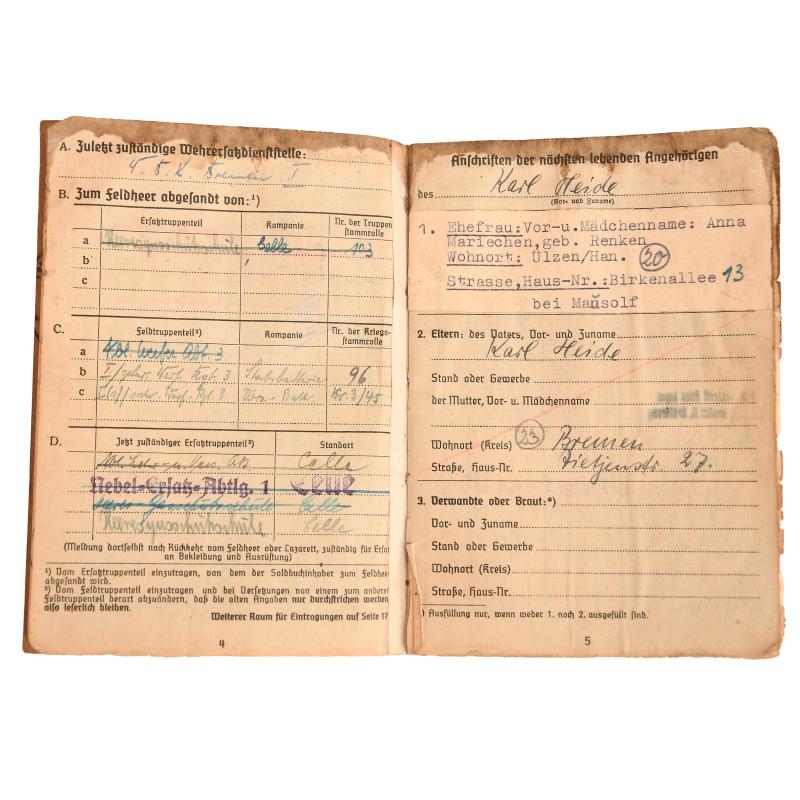 A. Zuletzt zuständige Wehrersatzdienststelle:
Bremen I
B. Zum Feldheer abgesandt von:¹)
Ersatztruppenteil Kompanie Nr. der Truppen-
stammrolle
a Heeresgasschutzschule Celle 103
b
c
C. Feldtruppenteil²) Kompanie Nr. der Kriegs-
stammrolle
a 3
b 3 Stabsbatterie 96
c 3 3/45
D. Jetzt zuständiger Ersatztruppenteil²) Standort
Celle
Nebel-Ersatz-Abtlg. 1 Celle
Heeres Gasschutzschule Celle
Heeresgasschutzschule Celle
(Meldung dortselbst nach Rückkehr vom Feldheer oder Lazarett, zuständig für Ersatz
an Bekleidung und Ausrüstung)
¹) Vom Ersatztruppenteil einzutragen, von dem der Soldbuchinhaber zum Feldheer
abgesandt wird.
²) Vom Feldtruppenteil einzutragen und bei Versetzungen von einem zum anderen
Feldtruppenteil derart abzuändern, daß die alten Angaben nur durchstrichen werden,
also leserlich bleiben.
Weiterer Raum für Eintragungen auf Seite 17
4
Anschriften der nächsten lebenden Angehörigen
des Karl Heide
(Vor- und Zuname)
1. Ehefrau:Vor-u.Mädchenname: Anna
Mariechen,geb. Renken
Wohnort: Ülzen/Han. 20
Strasse,Haus-Nr.:Birkenallee 13
bei Mausolf
2. Eltern: des Vaters, Vor- und Zuname
Karl Heide
Stand oder Gewerbe
der Mutter, Vor- u. Mädchenname
Wohnort (Kreis) 23 Bremen
Straße, Haus-Nr. Dietjenstr 27.
3. Verwandte oder Braut:*)
Vor- und Zuname
Stand oder Gewerbe
Wohnort (Kreis)
Straße, Haus-Nr.
) Ausfüllung nur, wenn weder 1. noch 2. ausgefüllt sind.
5